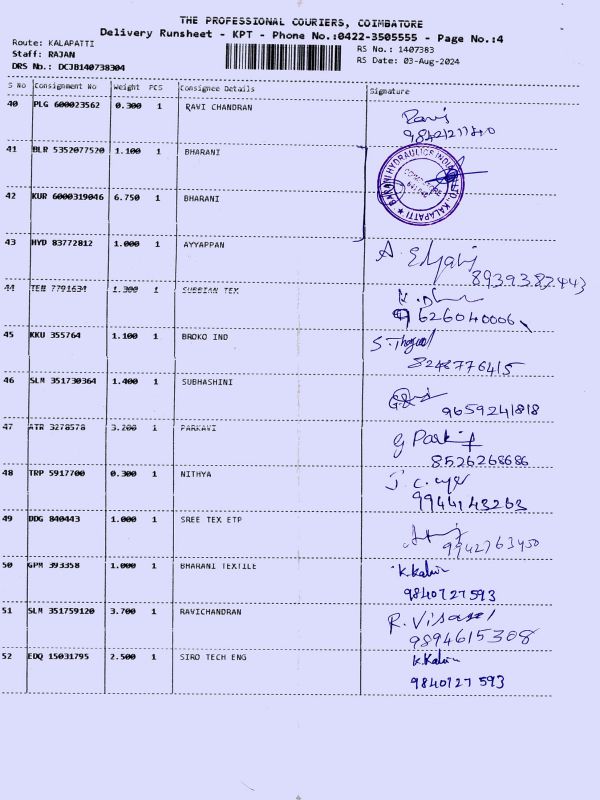 THE PROFESSIONAL COURIERS, COIMBATORE
Delivery Runsheet - KPT - Phone No.:0422-3505555 - Page No.:4
Route: KALAPATTI
Staff: RAJAN
DRS No.: DCJB140738304
RS No.: 1407383
RS Date: 03-Aug-2024
S No Consignment No Weight PCS Consignee Details Signature
40 PLG 600023562 0.300 1 RAVI CHANDRAN
Ravi
41 BLR 5352077520 1.100 1 BHARANI
BHARANI HYDRAULICS INDIA LTD., KALAPATTI
42 KUR 6000319046 6.750 1 BHARANI
43 HYD 83772812 1.000 1 AYYAPPAN
8939382443
44 TEN 7791634 1.300 1 SUBBIAN TEX
9626040006
45 KKU 355764 1.100 1 BROKO IND
8248776415
46 SLM 351730364 1.400 1 SUBHASHINI
9659241818
47 ATR 3278578 3.200 1 PARKAVI
8526268686
48 TRP 5917700 0.300 1 NITHYA
9944143263
49 DDG 840443 1.000 1 SREE TEX ETP
9942763450
50 GPM 393358 1.000 1 BHARANI TEXTILE
9840727593
51 SLM 351759120 3.700 1 RAVICHANDRAN
9894615308
52 EDQ 15031795 2.500 1 SIRO TECH ENG
9840727593